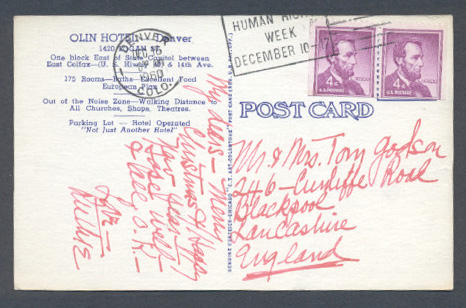 OLIN HOTEL — Denver
1420 LOGAN ST.
One block East of State Capitol between
East Colfax—(U. S. Hiway 40) & 14th Ave.
175 Rooms—Baths—Excellent Food
European Plan
Out of the Noise Zone—Walking Distance to
All Churches, Shops, Theatres.
Parking Lot — Hotel Operated
"Not Just Another Hotel"
DENVER
DEC 16
PM
1960
COLO.
HUMAN RIGHTS
WEEK
DECEMBER 10-17
4¢
U.S. POSTAGE
4¢
U.S. POSTAGE
POST CARD
My dears — Merry
Christmas & Happy
New Year —
Hotel well
& all O.K. —
Love —
Mr & Mrs. Tom
246 — Cunliffe Road
Blackpool
Lancashire
England